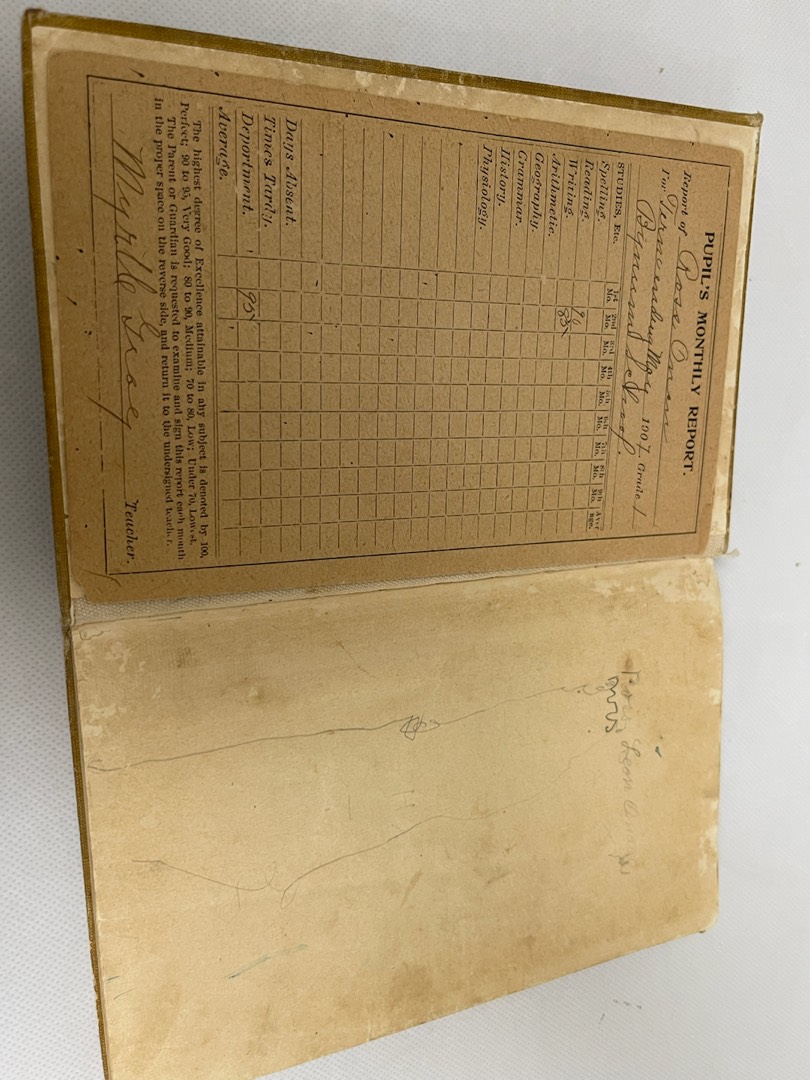 PUPIL'S MONTHLY REPORT.
Report of Rose Owen
For Term ending May 1907 Grade 1
Bynum School.
STUDIES, Etc. 1st Mo. 2nd Mo. 3rd Mo. 4th Mo. 5th Mo. 6th Mo. 7th Mo. 8th Mo. 9th Mo. Aver age.
Spelling.
Reading. 90
Writing. 85
Arithmetic.
Geography.
Grammar.
History.
Physiology.
Days Absent.
Times Tardy.
Deportment. 95
Average.
The highest degree of Excellence attainable in any subject is denoted by 100,
Perfect; 90 to 95, Very Good; 80 to 90, Medium; 70 to 80, Low; Under 70, Lowest.
The Parent or Guardian is requested to examine and sign this report each month
in the proper space on the reverse side, and return it to the undersigned teacher.
Myrtle Teacher.
Leon